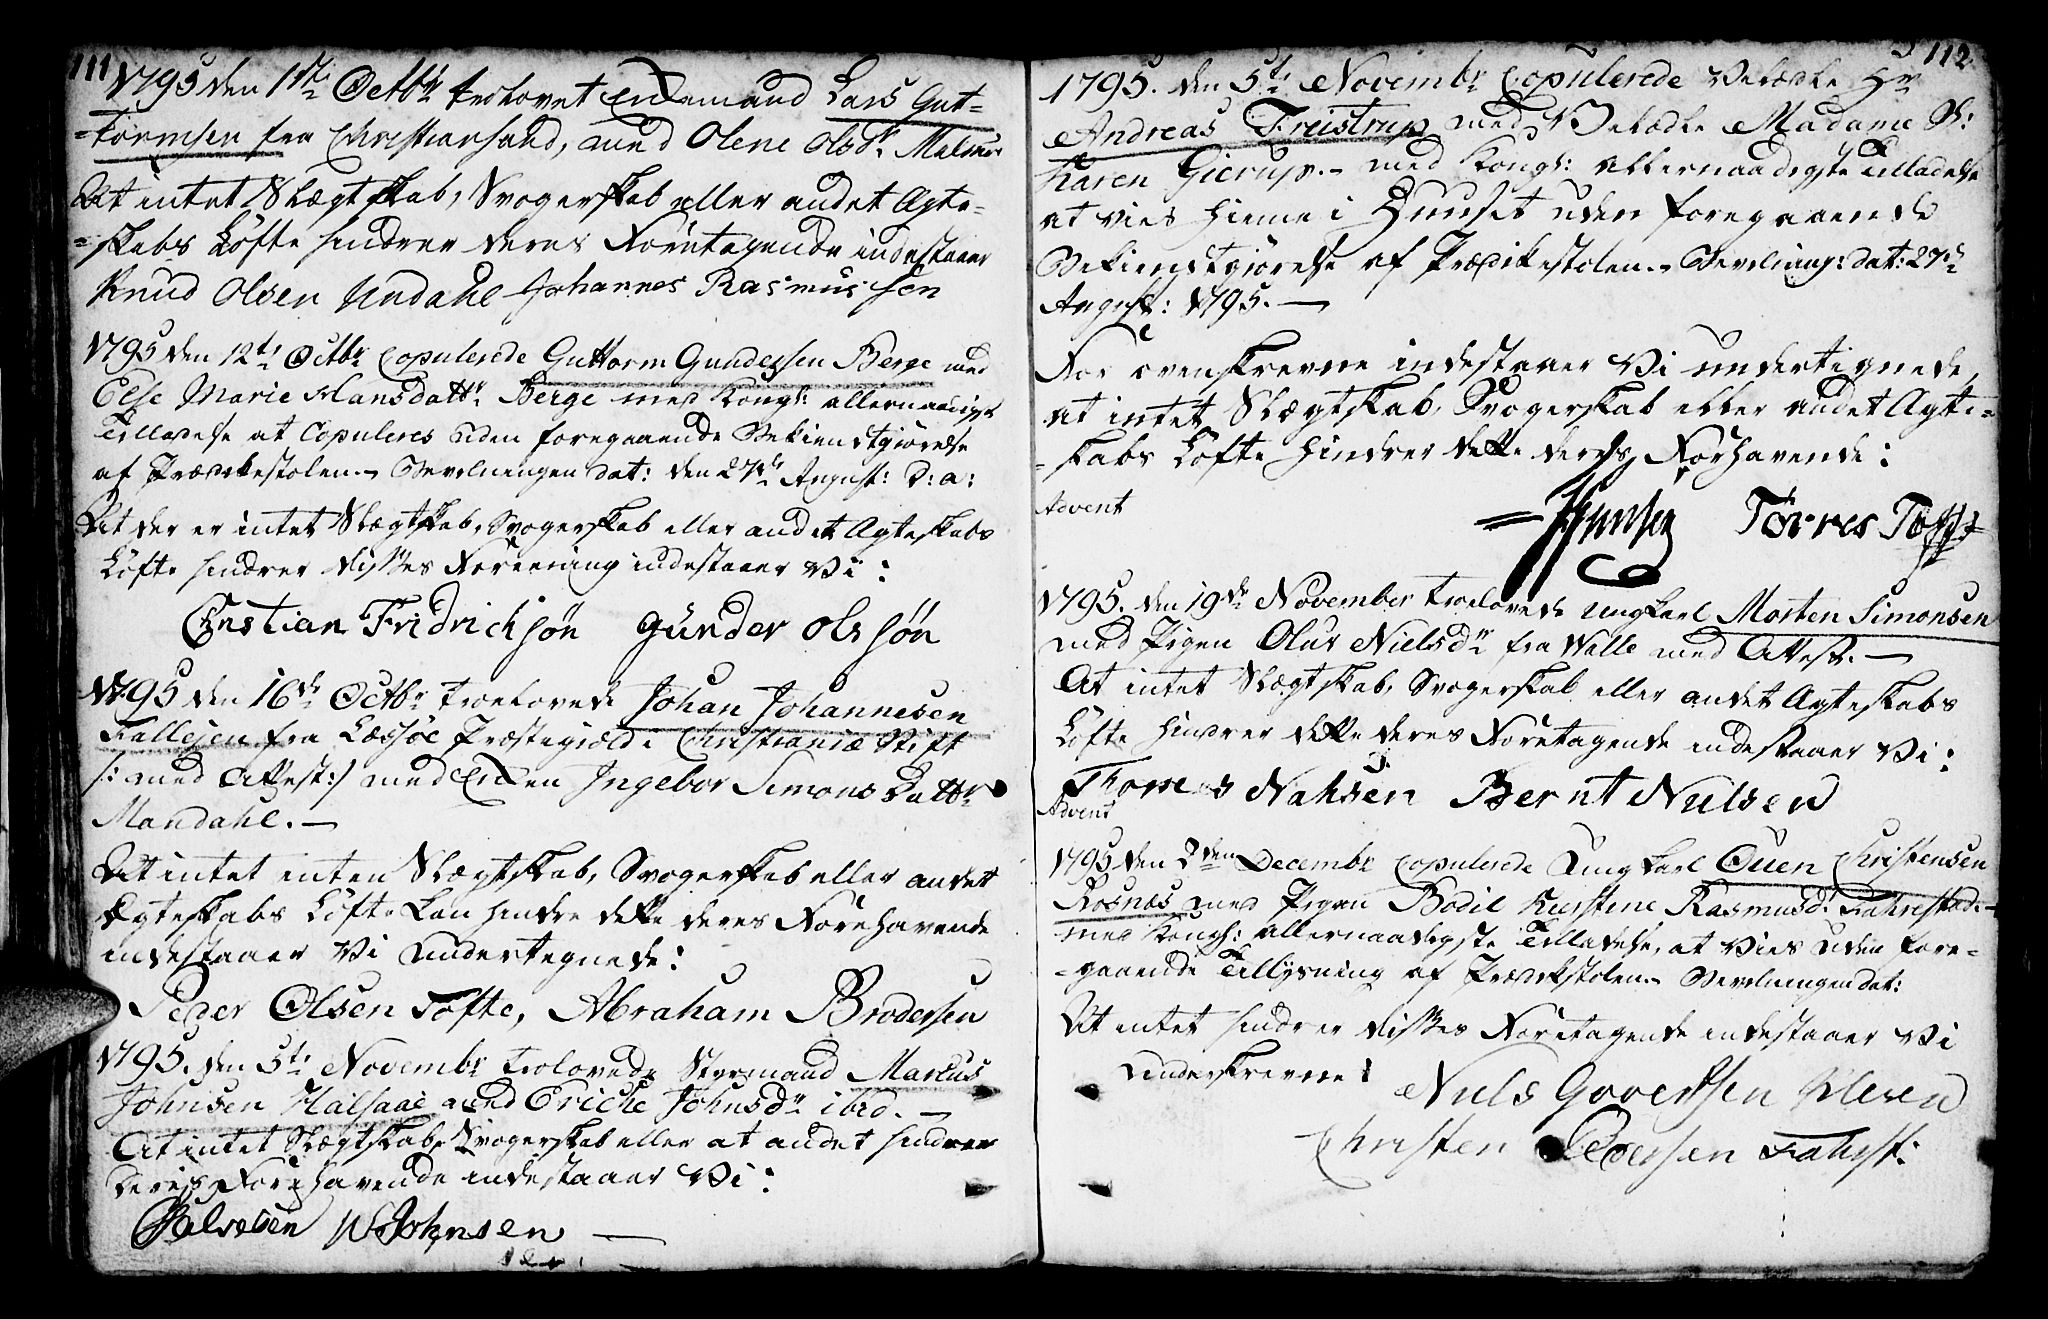 111
1795 den 1ste Octbr trolovet Enkemand Lars Gut-
-tormsen fra Christiansand, med Olene Olsdr
At intet Slægtskab, Svogerskab eller andet Ægte-
-skabs Løfte hindrer deres Foretagende indestaaer
Knud Olsen Undahl Johannes Rasmussen
1795 den 12te Octbr Copulerede Guttorm Gundersen Berge med
Else Marie Hansdattr Berge med Kongl: allernaadigst
Tilladelse at Copuleres uden foregaaende Bekiendtgiørelse
af Prædikestolen. Bevilningen dat: den 27de August: d: a:
At der er intet Slægtskab, Svogerskab eller andet Ægteskabs
Løfte hindrer disses Foreening indestaaer Vi:
Christian Fridrichsøn Günder Olssøn
1795 den 16de Octbr troelovede Johan Johannesen
Fallesen fra Læssøe Præstegield i Christianiæ Stift
/: med Attest :/ med Enken Ingebor Simons Dattr
Mandahl. —
At intet enten Slægtskab, Svogerskab eller andet
Ægteskabs Løfte kan hindre dette deres Forehavende
indestaaer Vi undertegnede:
Peder Olsen Tofte, Abraham Brodersen
1795. den 5te Novembr trolovede Styrmand Marcus
Johnsen Halsaae med Eriche Johnsdr ibid. —
At intet Slægtskab, Svogerskab eller at andet hindrer
deres Forehavende indestaaer Vi:
Johnsen —
112
1795. den 5te Novembr Copulerede Velædle Hr
Andreas Freistrup med Velædle Madame Sl:
Karen Gierup. – med Kongl: allernaadigste Tilladelse
at vies hieme i Huuset uden foregaaende
Bekiendtgjørelse af Prædikestolen. Bevilning: dat: 27de
August: 1795. —
For ovenskrevne indestaaer Vi undertegnede,
at intet Slægtskab, Svogerskab eller andet Ægte-
-skabs Løfte hindrer dette deres Forhavende:
Advent
Tørres
1795. den 19de November troelovede ungkarl Morten Simonsen
med Pigen Olur Nielsdr fra Walle med Attest. —
At intet Slægtskab, Svogerskab eller andet Ægteskabs
Løfte hindrer dette deres Foretagende indestaaer Vi:
Nahsen Bernt Nielsen
Advent
1795 den 2den Decembr Copulerede Ungkarl Ouen Christensen
Rosnæs med Pigen Bodil Kierstine Rasmusdr Fahrestad. —
med Kongl: allernaadigste Tilladelse, at vies uden fore-
-gaaende Tillysning af Prædikestolen. Bevilningen dat:
At intet hindrer disses Foretagende indestaaer Vi
Underskrevne:
Niels Govertsen
Christen Pedersen